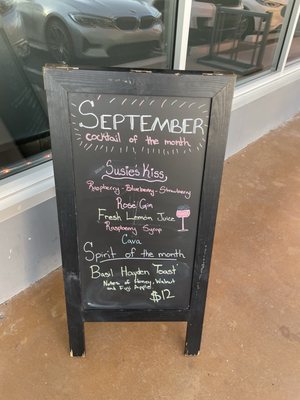 SEPTEMBER
cocktail of the month
Susie's Kiss
Raspberry - Blueberry - Strawberry
Rosé Gin
Fresh Lemon Juice
Raspberry Syrup
Cava
Spirit of the month
Basil Hayden Toast
Notes of Honey, Walnut
and Fuji Apple!
$12